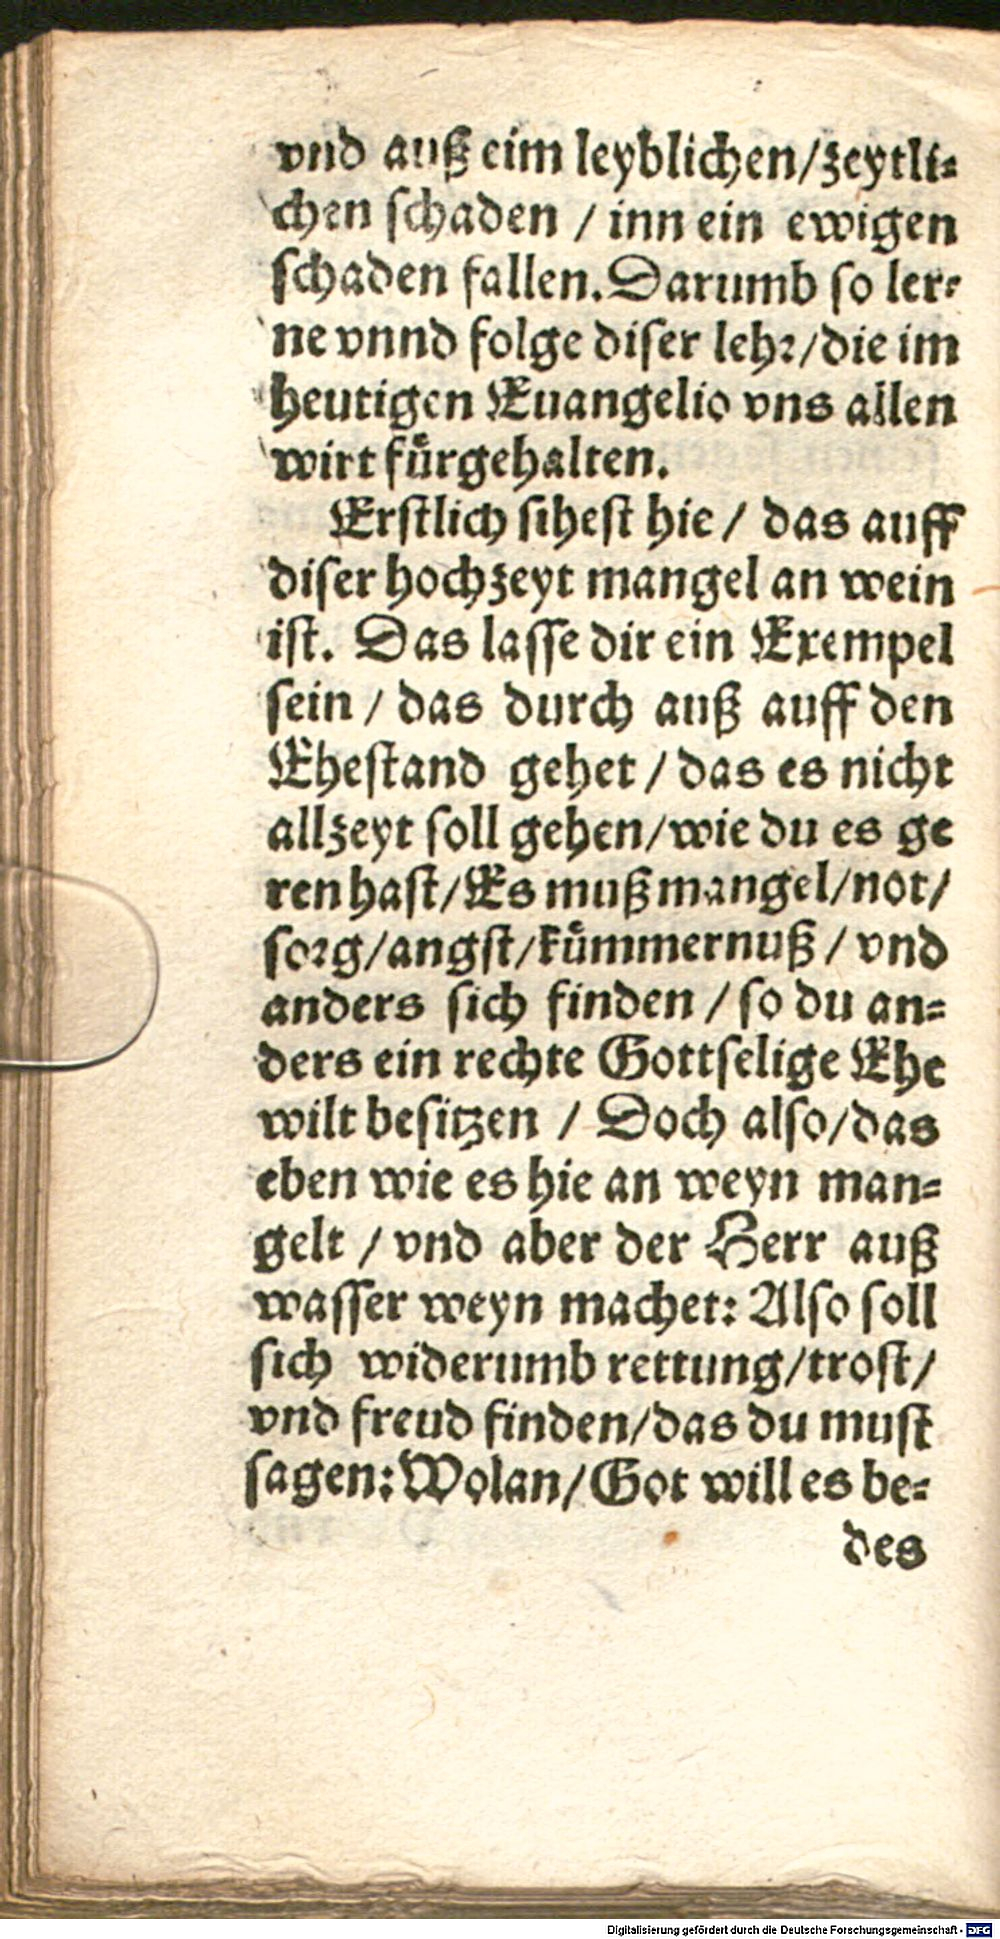 vnd auß eim leyblichen/zeytli⸗
chen ſchaden / inn ein ewigen
ſchaden fallen. Darumb ſo ler⸗
ne vnnd folge diſer lehꝛ/die im
heutigen Euangelio vns allen
wirt fuͤrgehalten.
Erſtlich ſiheſt hie / das auff
diſer hochzeyt mangel an wein
iſt. Das laſſe dir ein Exempel
ſein / das durch auß auff den
Eheſtand gehet / das es nicht
allzeyt ſoll gehen/wie du es ge
ren haſt/Es muß mangel/not/
ſoꝛg/angſt/kuͤmmernuß / vnd
anders ſich finden / ſo du an⸗
ders ein rechte Gottſelige Ehe
wilt beſitzen / Doch alſo/das
eben wie es hie an weyn man⸗
gelt / vnd aber der Herr auß
waſſer weyn machet: Alſo ſoll
ſich widerumb rettung/troſt/
vnd freud finden/das du muſt
ſagen: Wolan/Got will es be⸗
des
Digitalisierung gefördert durch die Deutsche Forschungsgemeinschaft - DFG